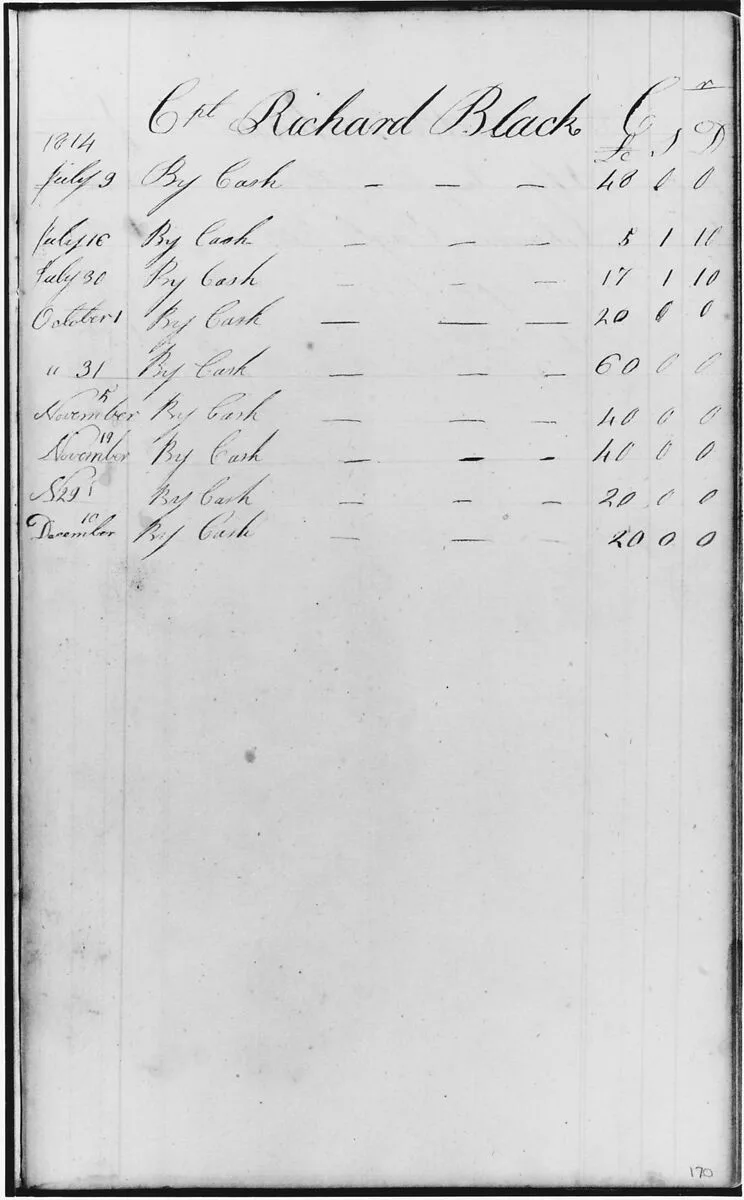 Cpt Richard Black Cr
1814 £ S D
July 9 By Cash — — — 48 0 0
July 16 By Cash — — — 5 1 10
July 30 By Cash — — — 17 1 10
October 1 By Cash — — — 20 0 0
" 31 By Cash — — — 60 0 0
November 5 By Cash — — — 40 0 0
November 19 By Cash — — — 40 0 0
By Cash — — — 20 0 0
December 10 By Cash — — — 20 0 0
170